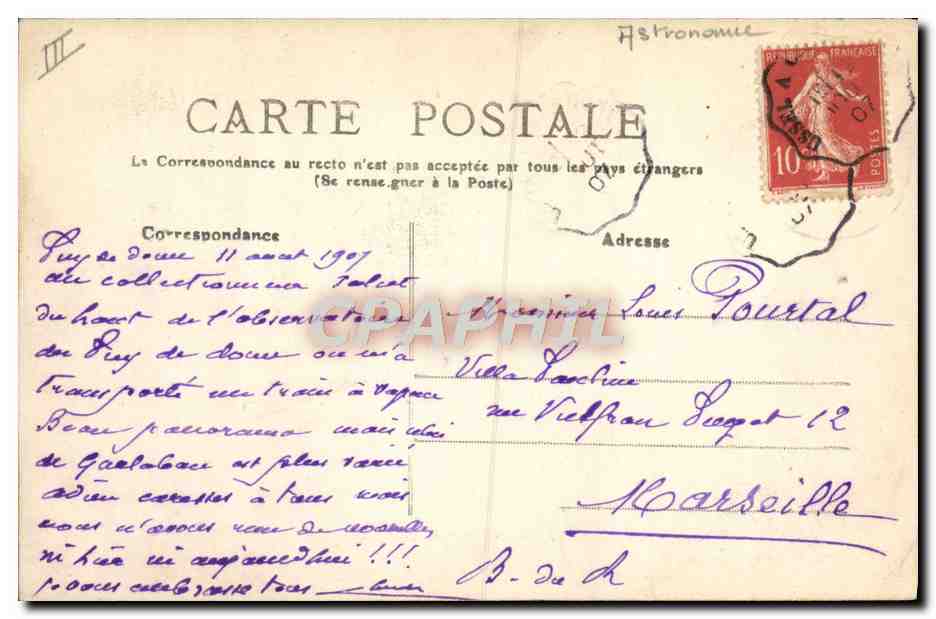 III
Astronomie
CARTE POSTALE
La Correspondance au recto n'est pas acceptée par tous les pays étrangers
(Se renseigner à la Poste)
REPUBLIQUE FRANÇAISE
10
POSTES
USSEL
07
07
07
Correspondance
Adresse
Puy de dome 11 aout 1907
au collectionneur salut
du haut de l'observatoire
du Puy de dome ou m'a
transporté un train à vapeur
Beau panorama mais celui
de Garlaban est plus varié
adieu caresses à tous mais
nous n'avons rien de nouvelles
ni hier ni aujourdhui !!!
vous embrasse tous
CPAPHIL
Monsieur Louis Pourtal
Villa
rue Puget 12
Marseille
B. du R